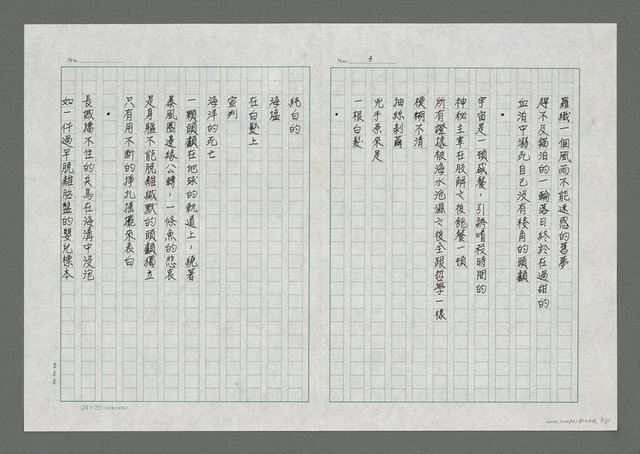 No. 3
羅織一個風雨不能迷惑的舊夢
趕不及錨泊的一輪落日終於在過甜的
血泊中溺死自己沒有稜角的頭顱
•
宇宙是一頓盛餐，引誘嗜殺時間的
神秘主宰在肢解之後飽餐一頓
所有證據被海水泡濕之後全跟哲學一樣
模糊不清
抽絲剝繭
兇手原來是
一根白髮
•
No.
純白的
海鹽
在白髮上
宣判
海洋的死亡
一顆頭顱在地球的軌道上，繞著
暴風圈邊緣公轉，一條魚的悲哀
是身軀不能脫離緘默的頭顱獨立
只有用不斷的掙扎搖擺來表白
•
長鐵擋不住的天馬在海溝中浸泡
如一件過早脫離胎盤的嬰兒標本
(24×25)